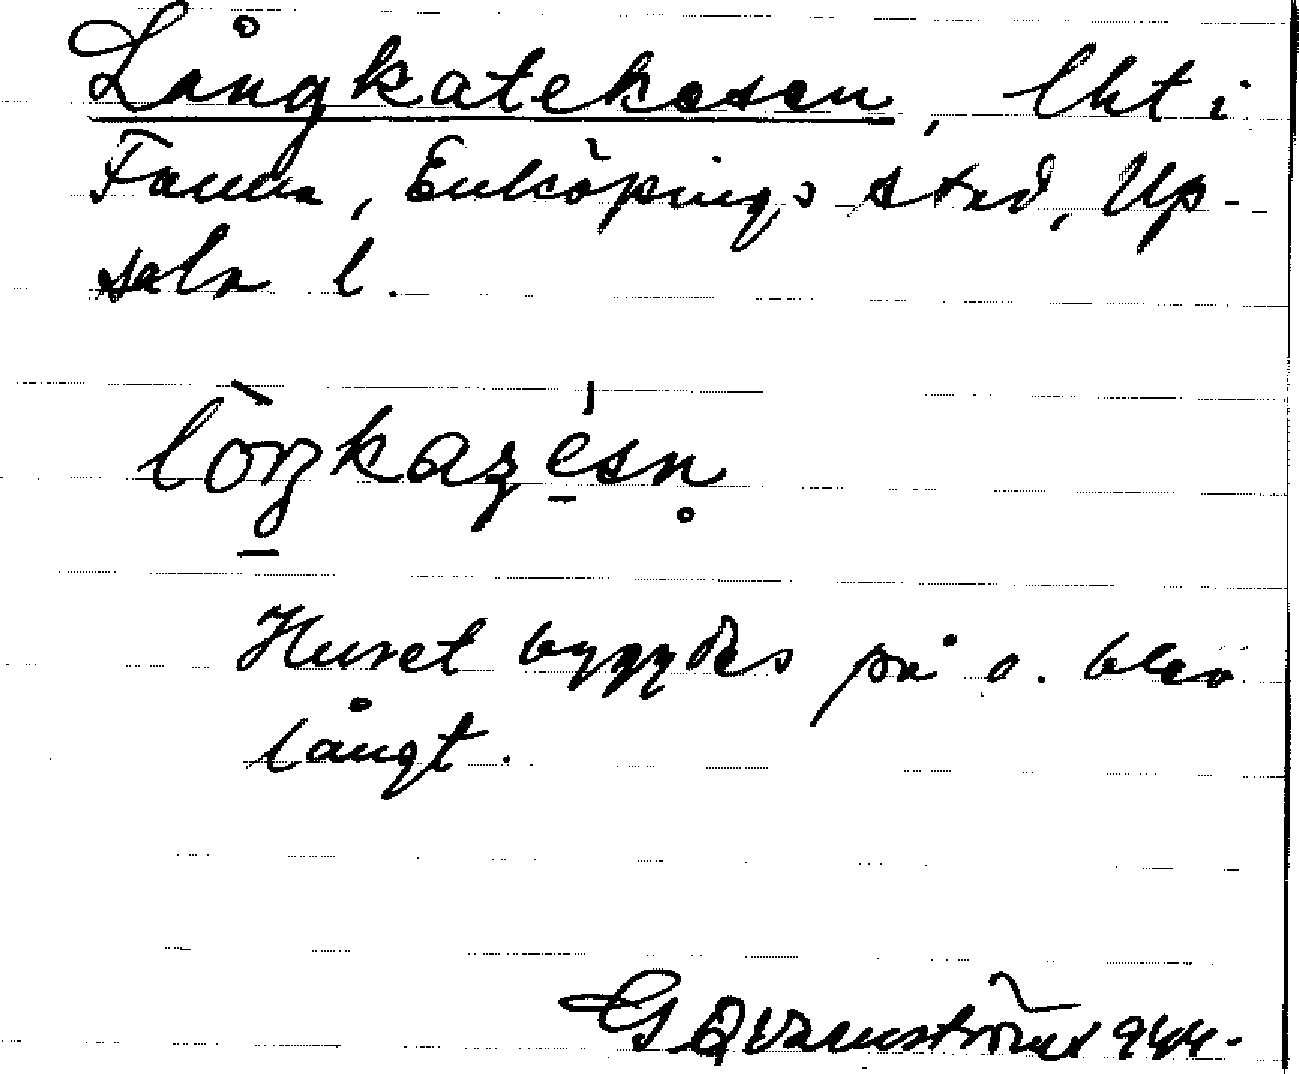 Långkatekesen, lht i
Fanna, Enköpings stad, Up-
sala l.
Huset byggdes på o. blev
långt.
G Qvarnström 944.